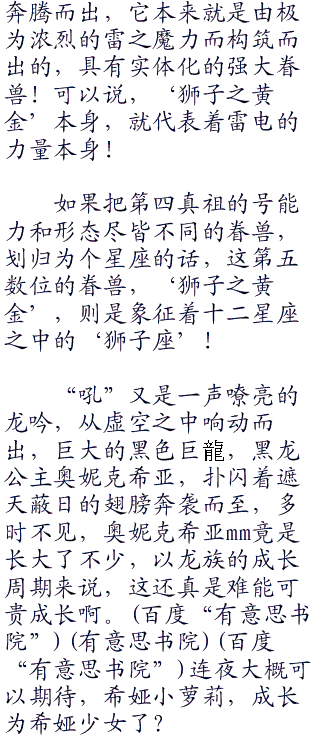 奔腾而出，它本来就是由极
为浓烈的雷之魔力而构筑而
出的，具有实体化的强大眷
兽！可以说，‘狮子之黄
金’本身，就代表着雷电的
力量本身！
如果把第四真祖的号能
力和形态尽皆不同的眷兽，
划归为个星座的话，这第五
数位的眷兽，‘狮子之黄
金’，则是象征着十二星座
之中的‘狮子座’！
“吼”又是一声嘹亮的
龙吟，从虚空之中响动而
出，巨大的黑色巨龍，黑龙
公主奥妮克希亚，扑闪着遮
天蔽日的翅膀奔袭而至，多
时不见，奥妮克希亚mm竟是
长大了不少，以龙族的成长
周期来说，这还真是难能可
贵成长啊。(百度“有意思书
院”)(有意思书院)(百度
“有意思书院”)连夜大概可
以期待，希娅小萝莉，成长
为希娅少女了？